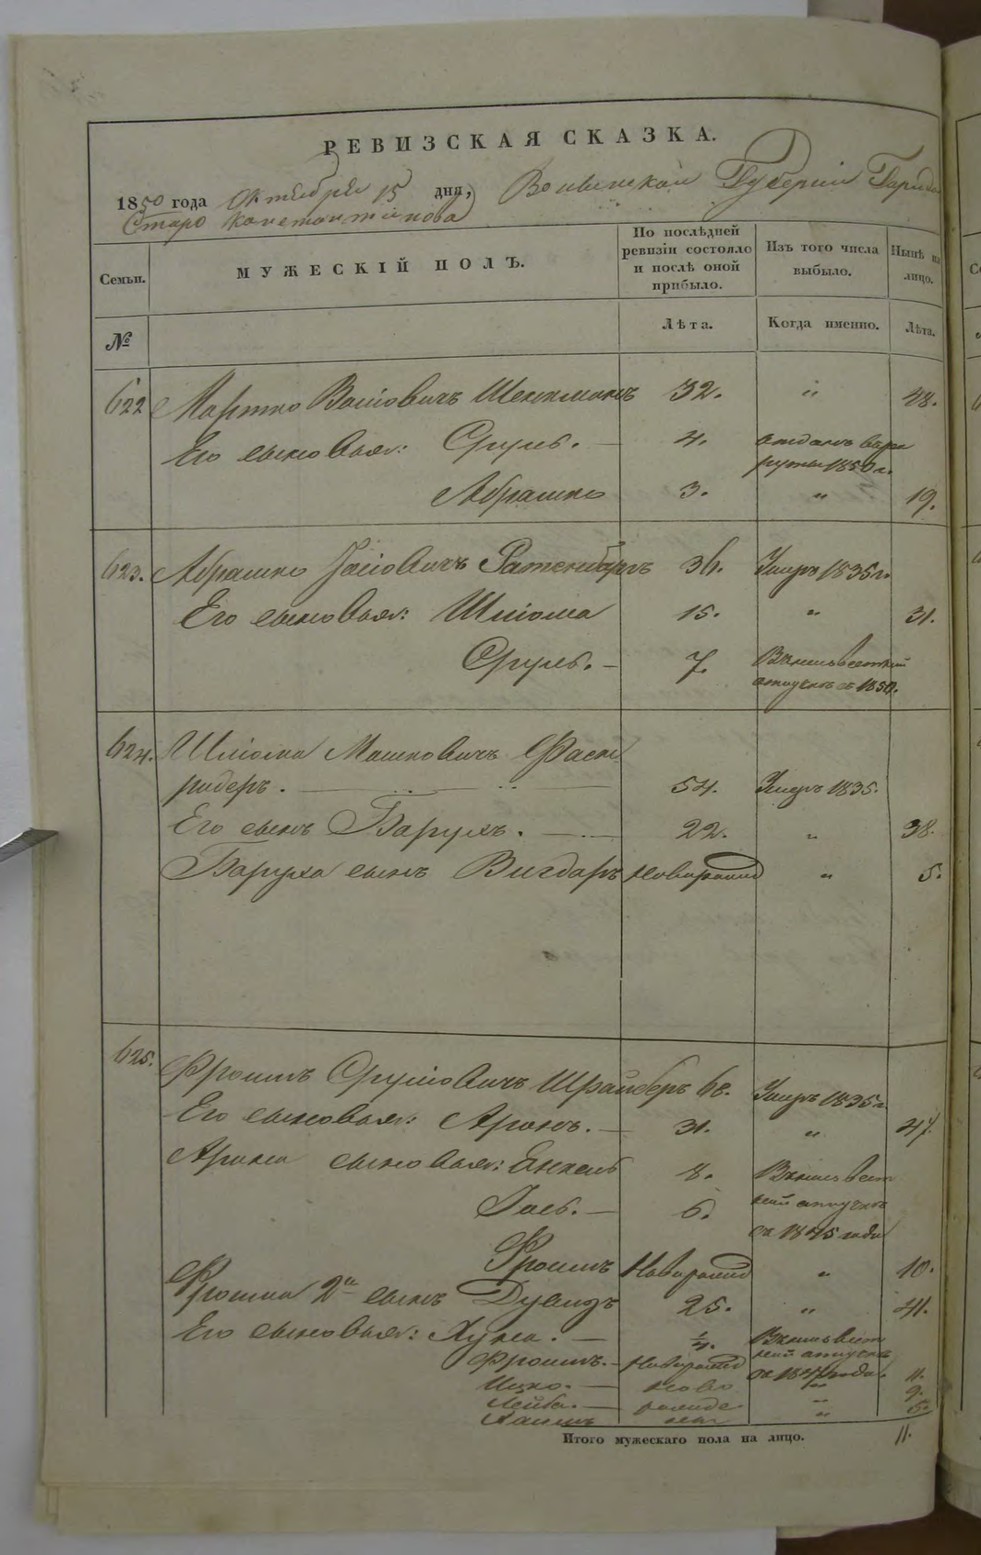 РЕВИЗСКАЯ СКАЗКА.
1850 года Октября 15 дня, Волынской Губернiи Города
Старо Константинова
Семьи. МУЖЕСКIЙ ПОЛЪ. По послѣдней ревизiи состояло и послѣ оной прибыло. Изъ того числа выбыло. Нынѣ на лицо.
№ Лѣта. Когда именно. Лѣта.
622 Мартко Вольовичъ 32. " 48.
Его сыновья: Сруль. 4. отданъ въ рек
руты 1850 г.
Абрашко 3. " 19.
623. Абрашко Iосiовичъ 36. Умеръ 1835 г.
Его сыновья: Шлiома 15. " 31.
Сруль. 7. Въ неизвестной
отлучкѣ съ 1850.
624. Шлiома Мошковичъ
ридеръ. 54. Умеръ 1835.
Его сынъ Барухъ. 22. " 38.
Баруха сынъ Вигдаръ новорожд " 5.
625.
Фроимъ Срулiовичъ Шрайберъ 68. Умеръ 1835 г.
Его сыновья: Аронъ. 31. " 47.
Арона сыновья: Енкель 8. Въ неизвест
Iось. 6. ной отлучкѣ
съ 1845 года
Фроимъ Новорожд " 10.
Фроима 2й сынъ Дувидъ 25. " 41.
Его сыновья: Хуна. Въ неизвест
ной отлучкѣ
Фроимъ. Новорожд года 11.
Ицко. ново " 9.
Лейба. рожде " 5.
Хаимъ "
Итого мужескаго пола на лицо. 11.